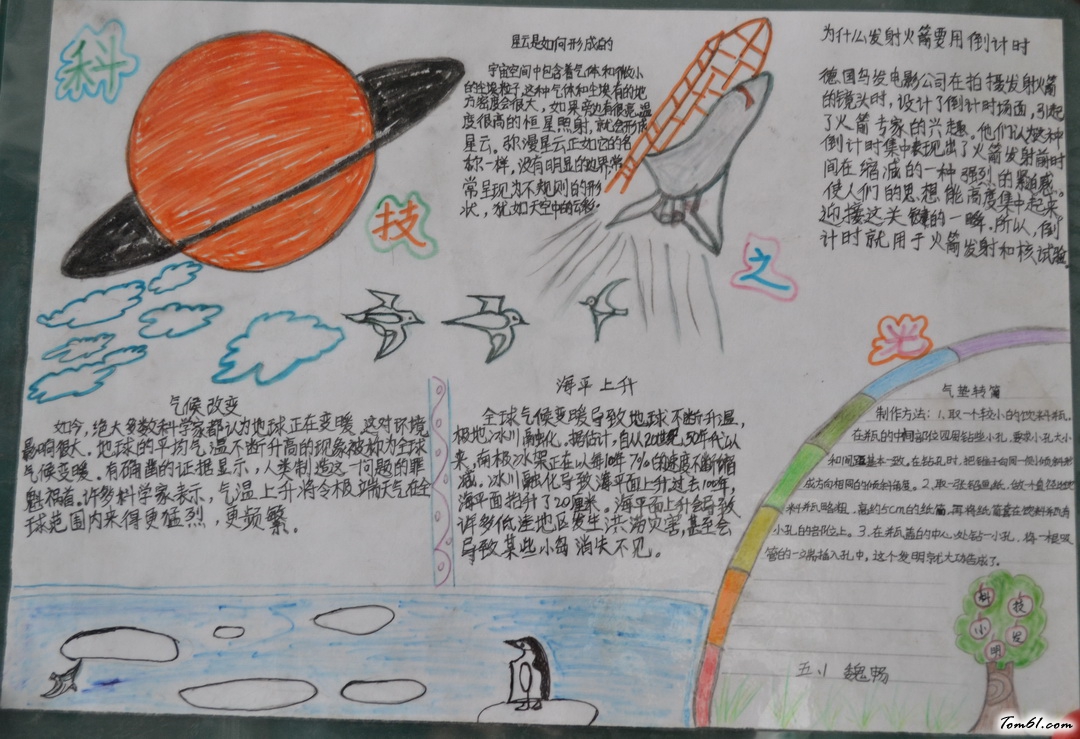 科
技
之
光
星云是如何形成的
宇宙空间中包含着气体和微小
的尘埃粒子,这种气体和尘埃,有的地
方密度会很大,如果旁边有很亮,温
度很高的恒星照射,就会形成
星云。弥漫星云正如它的名
称一样,没有明显的边界,常
常呈现为不规则的形
状,犹如天空中的云彩。
为什么发射火箭要用倒计时
德国乌发电影公司在拍摄发射火箭
的镜头时,设计了倒计时场面,引起
了火箭专家的兴趣。他们认为这种
倒计时集中表现出了火箭发射前时
间在缩减的一种强烈的紧迫感。
使人们的思想能高度集中起来,
迎接这关键的一瞬,所以,倒
计时就用于火箭发射和核试验。
气候改变
如今,绝大多数科学家都认为地球正在变暖,这对环境
影响很大。地球的平均气温不断升高的现象被称为全球
气候变暖。有确凿的证据显示,人类制造这一问题的罪
魁祸首。许多科学家表示,气温上升将令极端天气在全
球范围内来得更猛烈,更频繁。
海平上升
全球气候变暖导致地球不断升温,
极地冰川融化。据估计,自从20世纪50年代以
来,南极冰架正在以每10年7%的速度不断缩
减,冰川融化导致海平面上升过去100年,
海平面抬升了20厘米。海平面上升会导致
许多低洼地区发生洪涝灾害,甚至会
导致某些小岛消失不见。
气垫转筒
制作方法:1、取一个较小的饮料瓶,
在瓶的中间部位四周钻些小孔,要求小孔大小
和间距基本一致。在钻孔时,把
成方向相同的倾斜角度。2、取一张
料瓶略粗,高约5cm的纸筒,再将纸筒套在饮料瓶有
小孔的部位上。3、在瓶盖的中心处钻一小孔,将一根吸
管的一端插入孔中,这个发明就大功告成了。
科
技
小
发
明
五小 魏畅
Tom61.com